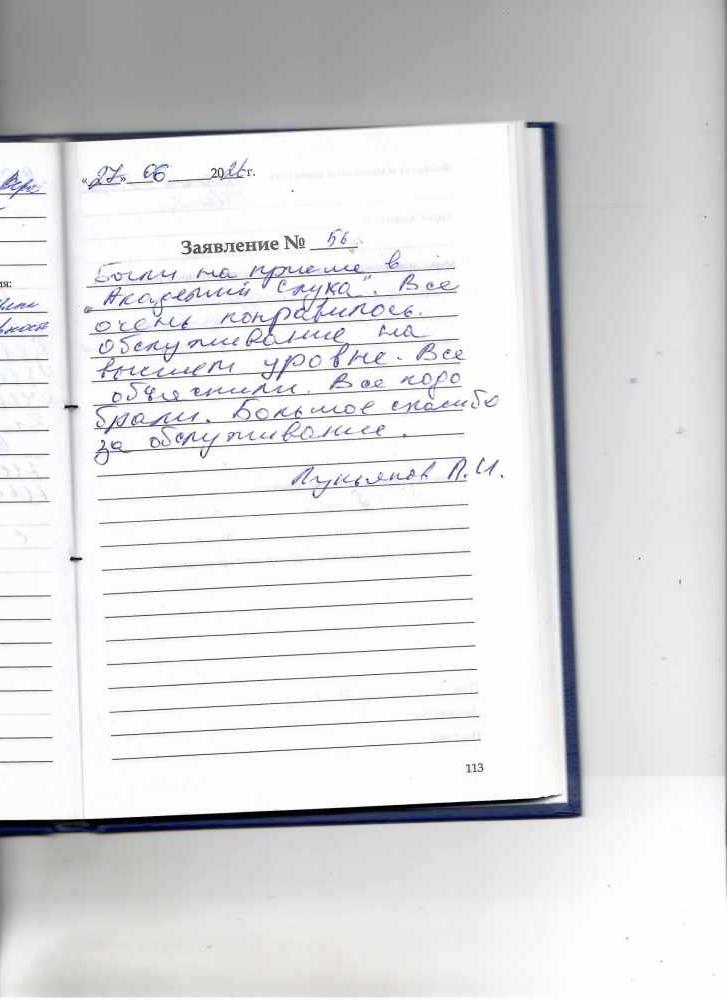 «27» 06 2026г.
Заявление № 56
Были на приеме в
"Академии Слуха". Все
очень понравилось.
Обслуживание на
высшем уровне. Все
объяснили. Все подо
брали. Большое спасибо
за обслуживание.
Лукьянов П.И.
113
ия: